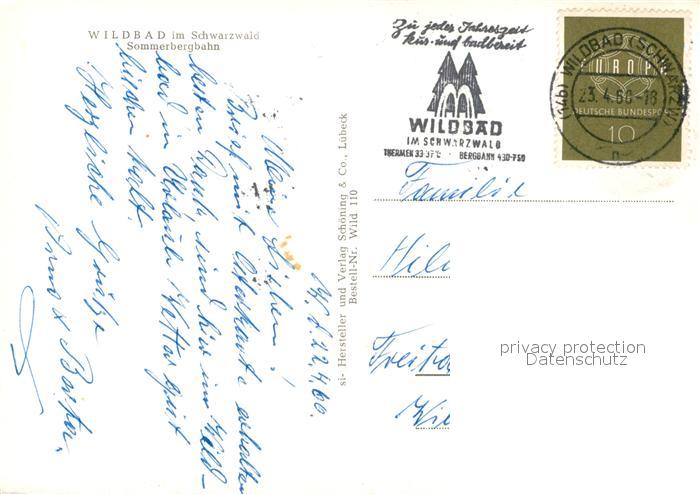 WILDBAD im Schwarzwald
Sommerbergbahn
W. d. 22.4.60.
Meine Lieben!
Brief mit Osterkarte erhalten
besten Dank, sind hier im Wild-
bad in Urlaub Wetter gut
bisschen kalt.
Herzliche Grüße
si- Hersteller und Verlag Schöning & Co., Lübeck
Bestell-Nr. Wild 110
Zu jeder Jahreszeit
kur- und badbereit
WILDBAD
IM SCHWARZWALD
THERMEN 33-37°C · BERGBAHN 430-750
(14b) WILDBAD (SCHWARZW)
23.4.60-18
EUROPA
DEUTSCHE BUNDESPOST
10
Familie
Hil
Freita
Wie
privacy protection
Datenschutz